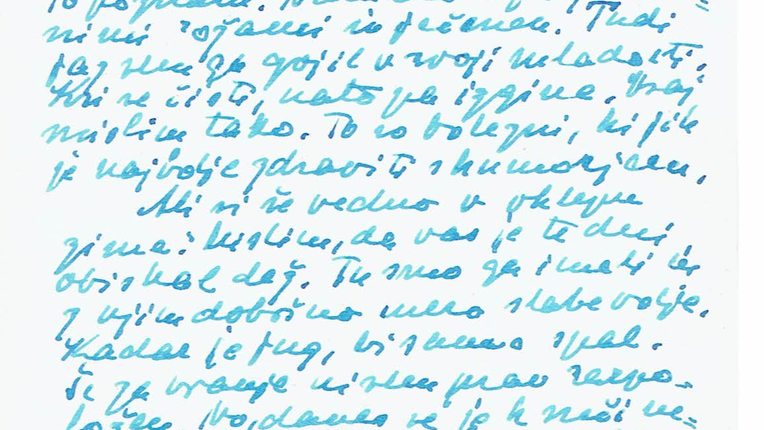 to poznam.
nimi rožami in ječmen. Tudi
jaz sem ga gojil v svoji mladosti.
Kri se čisti, nato pa izgine. Vsaj
mislim tako. To so bolezni, ki jih
je najbolje zdraviti s humorjem.
Ali si še vedno v oklepu
zime? Mislim, da vas je te dni
obiskal dež. Tu smo ga imeli in
z njim dobršno mero slabe volje.
Kadar je jug, bi samo spal.
Še za branje nisem prav razpo-
ložen. No, danes se je k